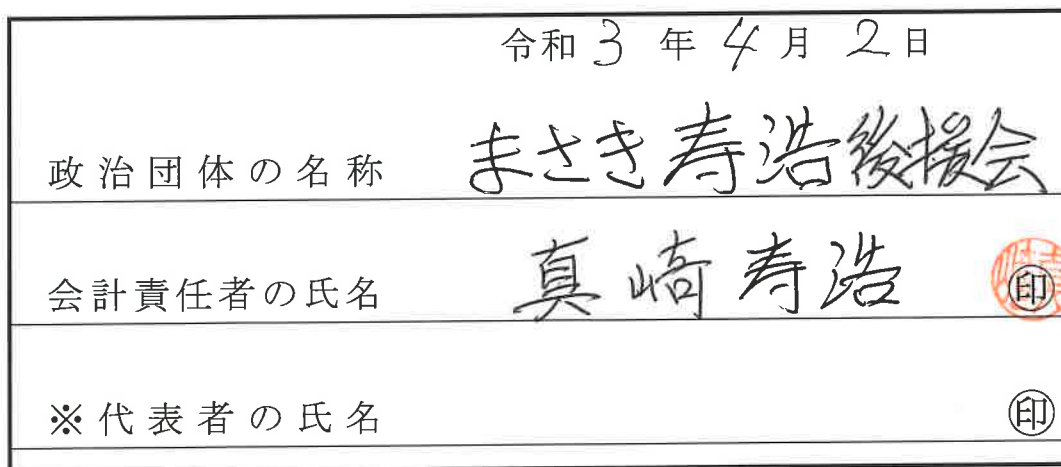 令和3年4月2日
政治団体の名称 まさき寿浩後援会
会計責任者の氏名 真崎寿浩 ㊞
※代表者の氏名 ㊞